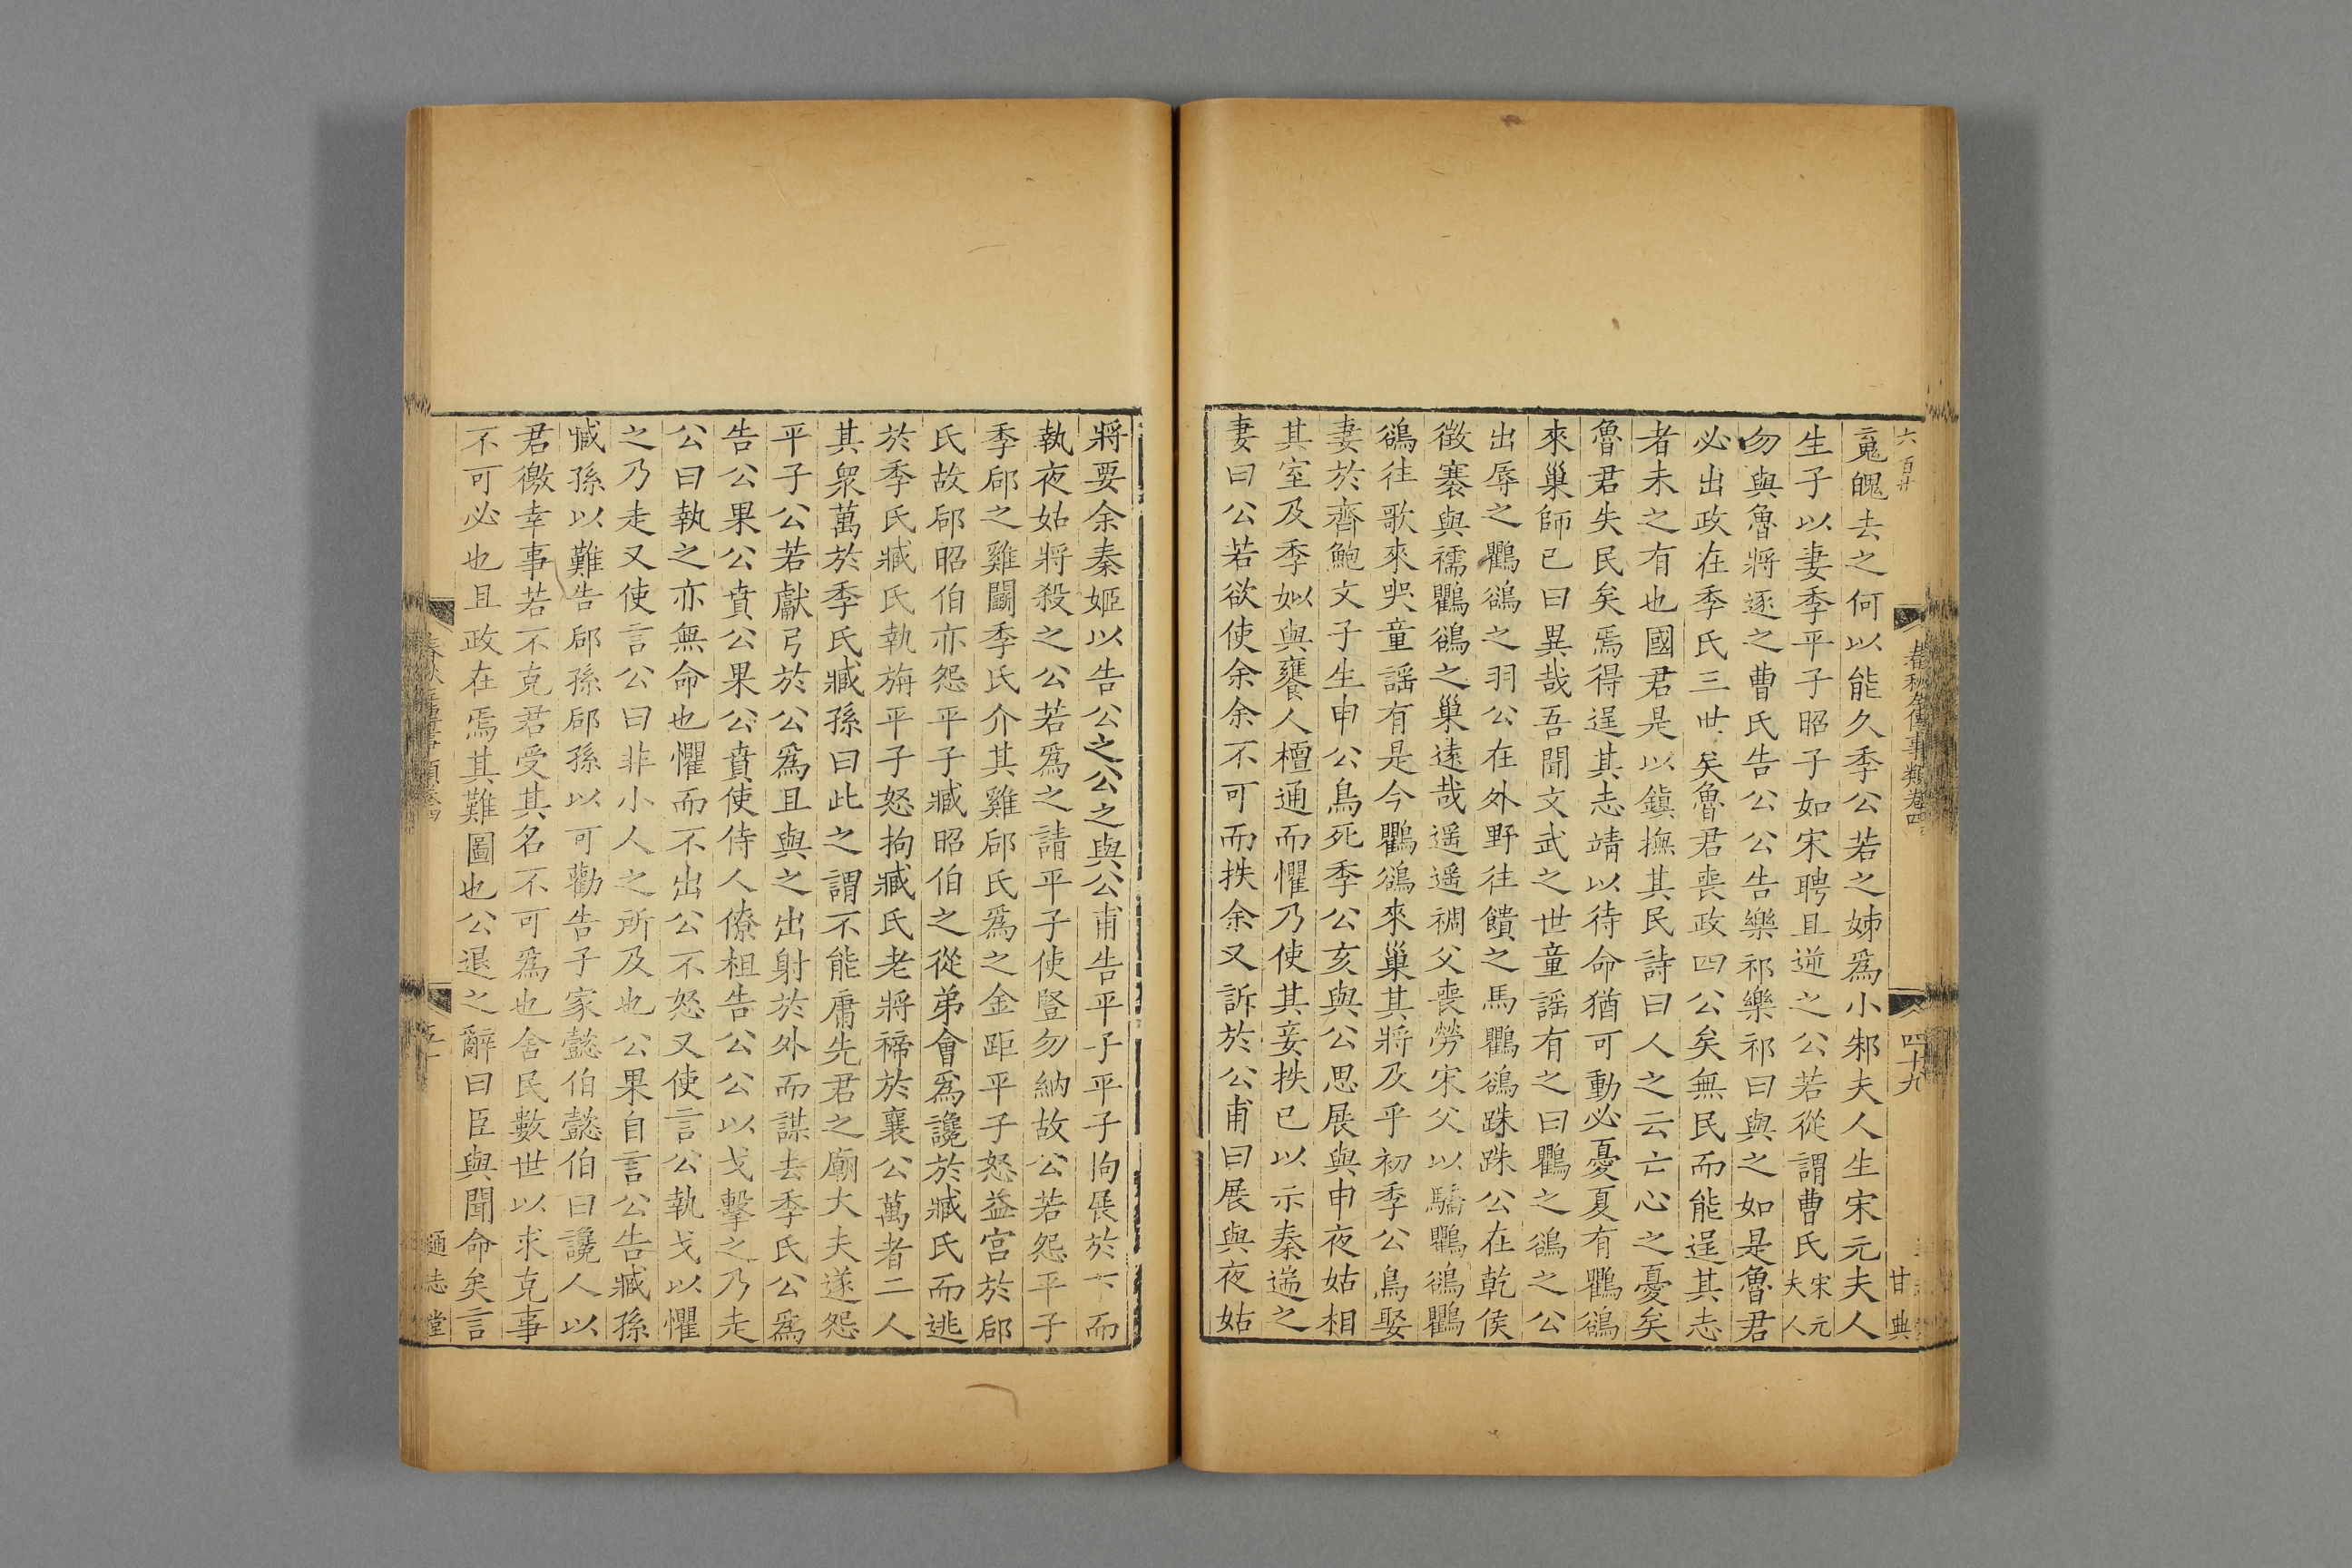 六百廿
春秋左傳事類卷四
四十九
甘典
䰟魄去之何以能久季公若之姊爲小邾夫人生宋元夫人
生子以妻季平子昭子如宋聘且逆之公若從謂曹氏宋元夫人
勿與魯將逐之曹氏告公公告樂祁樂祁曰與之如是魯君
必出政在季氏三世矣魯君喪政四公矣無民而能逞其志
者未之有也國君是以鎭撫其民詩曰人之云亡心之憂矣
魯君失民矣焉得逞其志靖以待命猶可動必憂夏有鸜鵒
來巢師已曰異哉吾聞文武之世童謡有之曰鸜之鵒之公
出辱之鸜鵒之羽公在外野往饋之馬鸜鵒跦跦公在乾侯
徵褰與襦鸜鵒之巢遠哉遥遥裯父喪勞宋父以驕鸜鵒鸜
鵒往歌來哭童謡有是今鸜鵒來巢其將及乎初季公鳥娶
妻於齊鮑文子生申公鳥死季公亥與公思展與申夜姑相
其室及季姒與饔人檀通而懼乃使其妾抶已以示秦遄之
妻曰公若欲使余余不可而抶余又訴於公甫曰展與夜姑
將要余秦姬以告公之公之與公甫告平子平子拘展於卞而
執夜姑將殺之公若爲之請平子使豎勿納故公若怨平子
季郈之雞鬬季氏介其雞郈氏爲之金距平子怒益宮於郈
氏故郈昭伯亦怨平子臧昭伯之從弟會爲讒於臧氏而逃
於季氏臧氏執旃平子怒拘臧氏老將禘於襄公萬者二人
其衆萬於季氏臧孫曰此之謂不能庸先君之廟大夫遂怨
平子公若獻弓於公爲且與之出射於外而謀去季氏公爲
告公果公賁公果公賁使侍人僚柤告公公以戈擊之乃走
公曰執之亦無命也懼而不出公不怒又使言公執戈以懼
之乃走又使言公曰非小人之所及也公果自言公告臧孫
臧孫以難告郈孫郈孫以可勸告子家懿伯懿伯曰讒人以
君徼幸事若不克君受其名不可爲也舍民數世以求克事
不可必也且政在焉其難圖也公退之辭曰臣與聞命矣言
通志堂